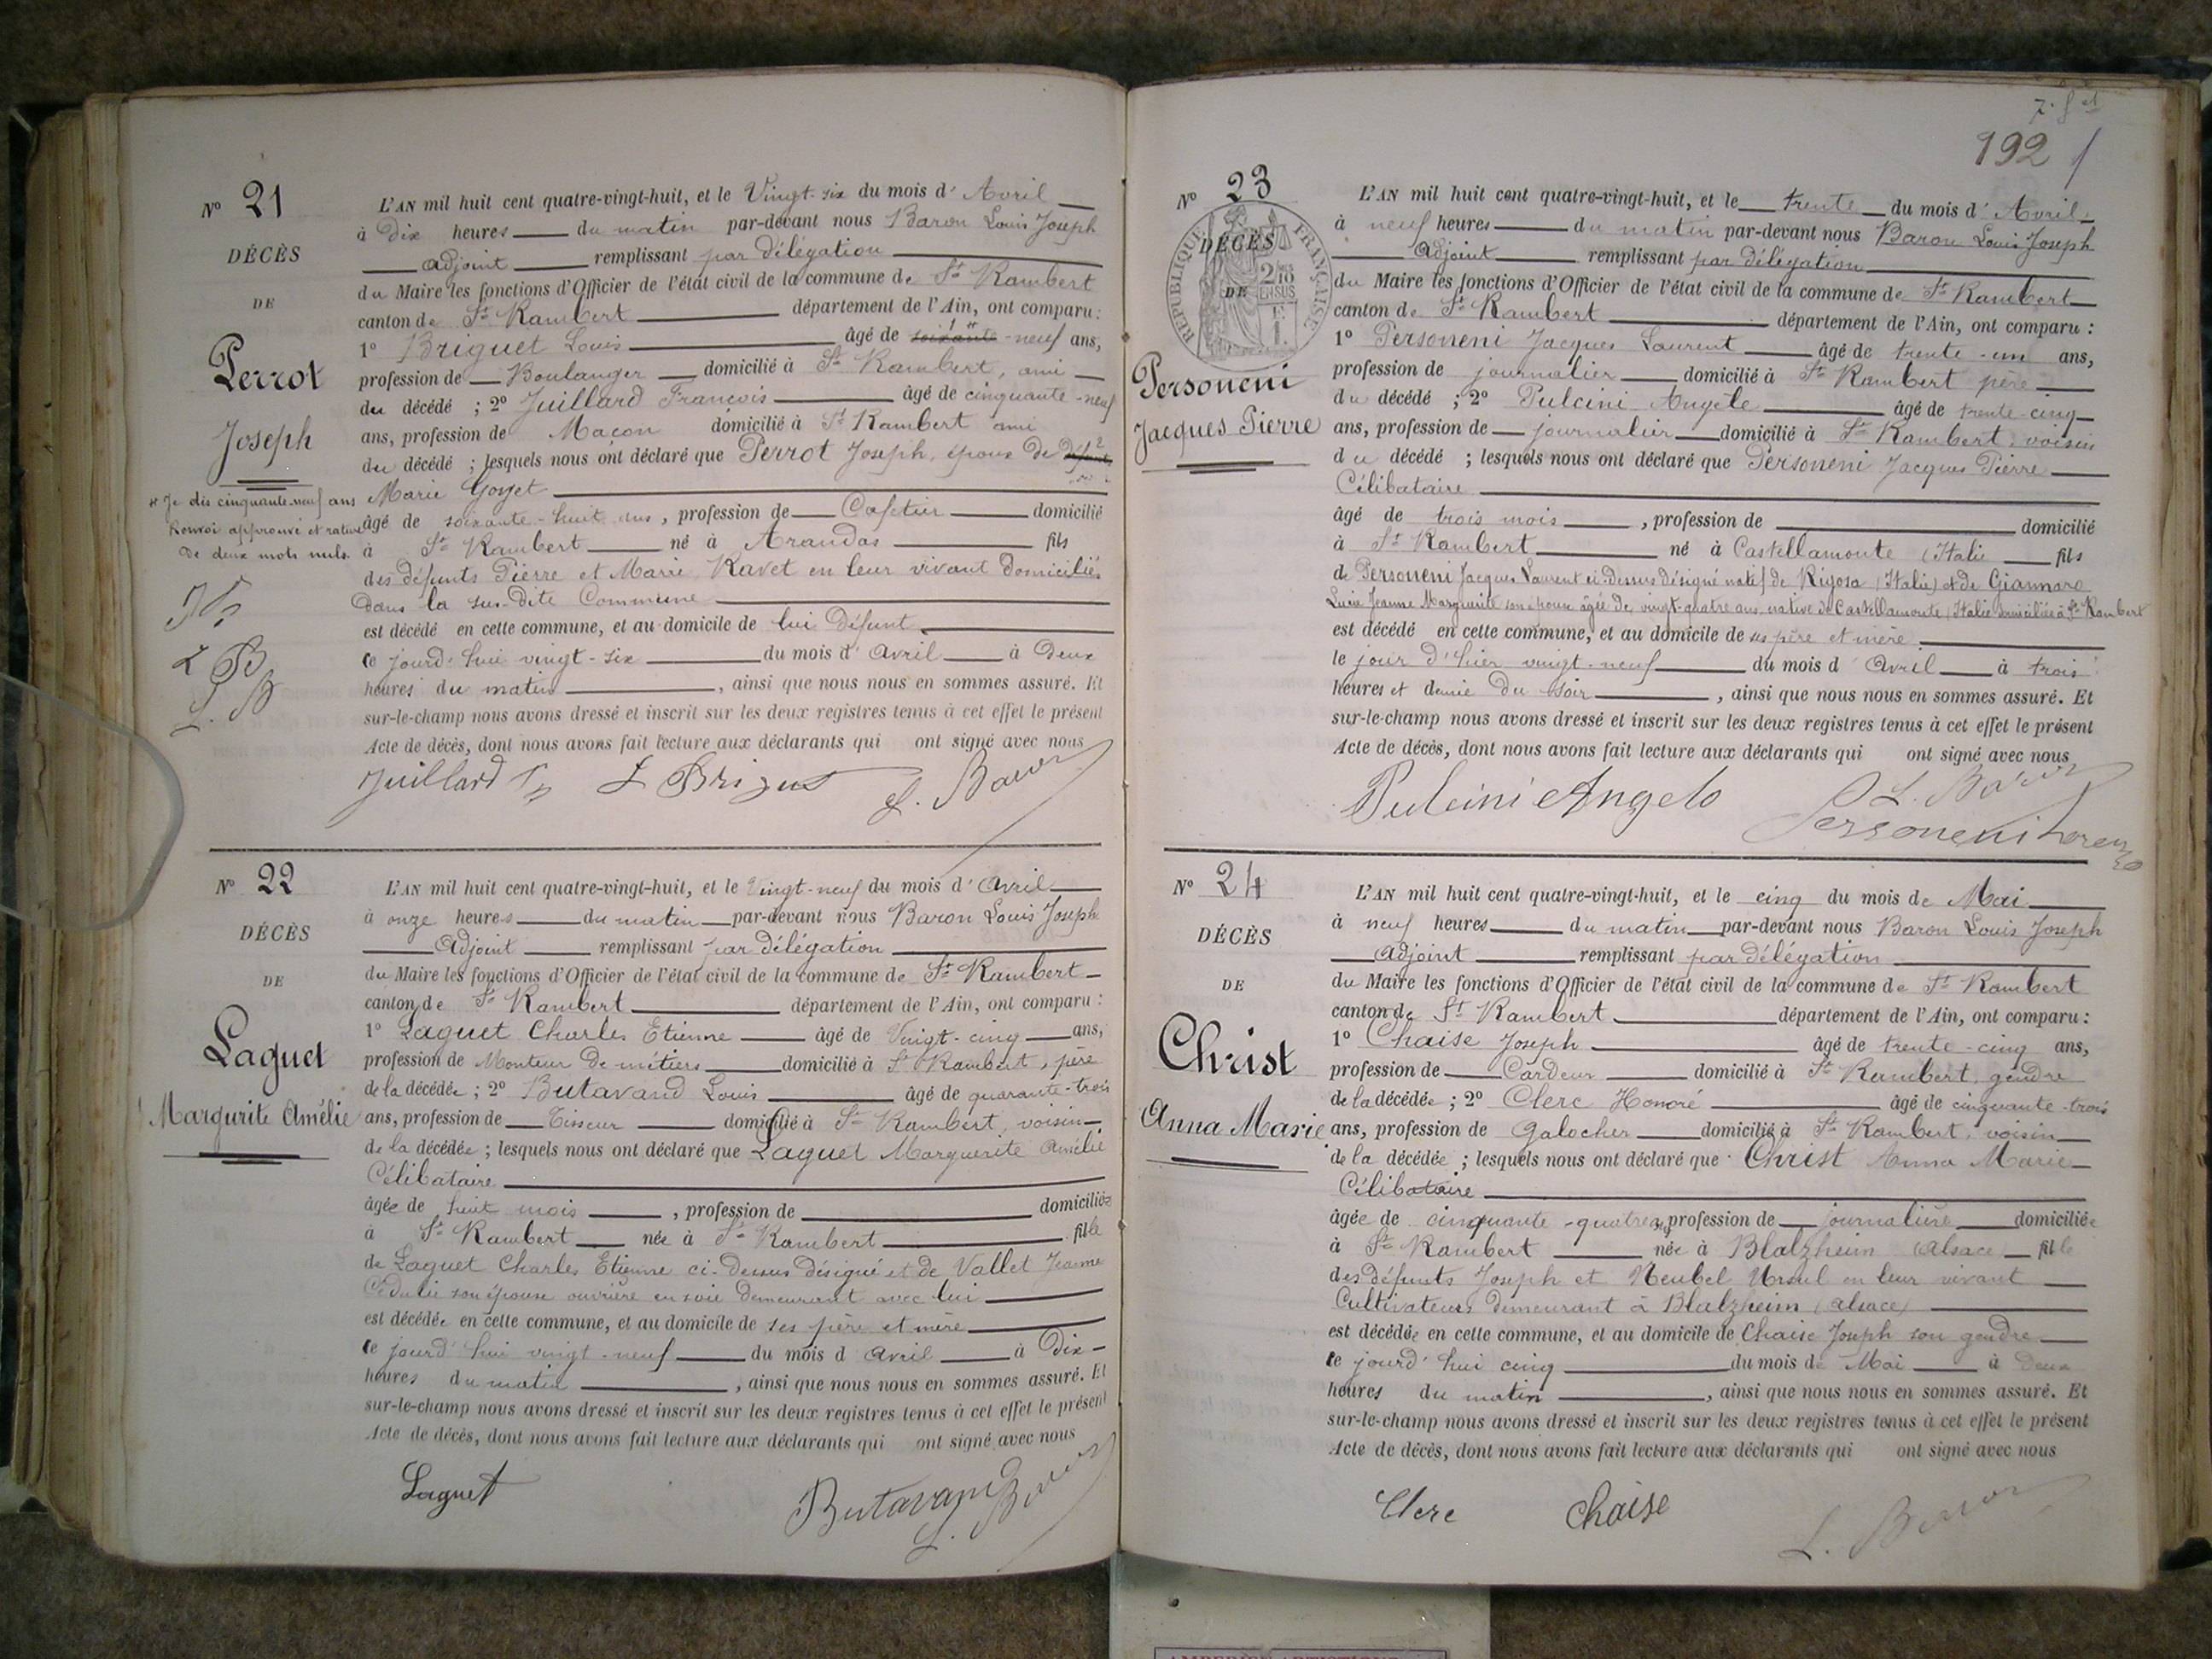 N° 21
DÉCÈS
DE
Perrot
Joseph
* Je dis cinquante-neuf ans
Renvoi approuvé et rature
de deux mots nuls.
L B
L. B
L'AN mil huit cent quatre-vingt-huit, et le Vingt-six du mois d'Avril
à Dix heures du matin par-devant nous Baron Louis Joseph
adjoint remplissant par délégation
du Maire les fonctions d'Officier de l'état civil de la commune de St Rambert
canton de St Rambert département de l'Ain, ont comparu :
1° Briguet Louis âgé de soixante-neuf ans,
profession de Boulanger domicilié à St Rambert, ami
du décédé ; 2° Juillard François âgé de cinquante-neuf
ans, profession de Maçon domicilié à St Rambert ami
du décédé ; lesquels nous ont déclaré que Perrot Joseph, époux de
Marie Goyet
âgé de soixante-huit ans, profession de Cafetier domicilié
à St Rambert né à Arandas fils
des défunts Pierre et Marie Ravet en leur vivant domiciliés
dans la sus-dite Commune
est décédé en cette commune, et au domicile de lui défunt
le jourd'hui vingt-six du mois d'Avril à Deux
heures du matin, ainsi que nous nous en sommes assuré. Et
sur-le-champ nous avons dressé et inscrit sur les deux registres tenus à cet effet le présent
Acte de décès, dont nous avons fait lecture aux déclarants qui ont signé avec nous
Juillard L Briguet L. Baron
N° 22
DÉCÈS
DE
Laguet
Margurite Amélie
L'AN mil huit cent quatre-vingt-huit, et le Vingt-neuf du mois d'Avril
à onze heures du matin par-devant nous Baron Louis Joseph
Adjoint remplissant par délégation
du Maire les fonctions d'Officier de l'état civil de la commune de St Rambert
canton de St Rambert département de l'Ain, ont comparu :
1° Laguet Charles Etienne âgé de Vingt-cinq ans,
profession de Monteur de métiers domicilié à St Rambert, père
de la décédée ; 2° Butavand Louis âgé de quarante-trois
ans, profession de Tisseur domicilié à St Rambert, voisin
de la décédée ; lesquels nous ont déclaré que Laguet Marguerite Amélie
Célibataire
âgée de huit mois, profession de domiciliée
à St Rambert née à St Rambert fille
de Laguet Charles Etienne ci-dessus désigné et de Vallet Jeanne
son épouse ouvrière en soie demeurant avec lui
est décédée en cette commune, et au domicile de ses père et mère
le jourd'hui vingt-neuf du mois d'Avril à Dix
heures du matin, ainsi que nous nous en sommes assuré. Et
sur-le-champ nous avons dressé et inscrit sur les deux registres tenus à cet effet le présent
Acte de décès, dont nous avons fait lecture aux déclarants qui ont signé avec nous
Laguet Butavand L. Baron
192
N° 23
RÉPUBLIQUE FRANÇAISE
2/10 EN SUS
DÉCÈS
DE
Personeni
Jacques Pierre
L'AN mil huit cent quatre-vingt-huit, et le trente du mois d'Avril
à neuf heures du matin par-devant nous Baron Louis Joseph
Adjoint remplissant par délégation
du Maire les fonctions d'Officier de l'état civil de la commune de St Rambert
canton de St Rambert département de l'Ain, ont comparu :
1° Personeni Jacques Laurent âgé de trente-un ans,
profession de journalier domicilié à St Rambert père
du décédé ; 2° Pulcini Angéle âgé de trente-cinq
ans, profession de journalier domicilié à St Rambert, voisin
du décédé ; lesquels nous ont déclaré que Personeni Jacques Pierre
Célibataire
âgé de trois mois, profession de domicilié
à St Rambert né à Castellamonte (Italie fils
de Personeni Jacques Laurent ci-dessus désigné natif de Rigosa (Italie) et de Giannaro
Lucie Jeanne Marguerite son épouse âgée de vingt-quatre ans native de Castellamonte (Italie domiciliée à St Rambert
est décédé en cette commune, et au domicile de ses père et mère
le jour d'hier vingt-neuf du mois d'Avril à trois
heures et demie du soir, ainsi que nous nous en sommes assuré. Et
sur-le-champ nous avons dressé et inscrit sur les deux registres tenus à cet effet le présent
Acte de décès, dont nous avons fait lecture aux déclarants qui ont signé avec nous
Pulcini Angelo L. Baron
Personeni Lorenzo
N° 24
DÉCÈS
DE
Christ
Anna Marie
L'AN mil huit cent quatre-vingt-huit, et le cinq du mois de Mai
à neuf heures du matin par-devant nous Baron Louis Joseph
adjoint remplissant par délégation
du Maire les fonctions d'Officier de l'état civil de la commune de St Rambert
canton de St Rambert département de l'Ain, ont comparu :
1° Chaise Joseph âgé de trente-cinq ans,
profession de Cardeur domicilié à St Rambert, gendre
de la décédée ; 2° Clerc Honoré âgé de cinquante-trois
ans, profession de Galocher domicilié à St Rambert, voisin
de la décédée ; lesquels nous ont déclaré que Christ Anna Marie
Célibataire
âgée de cinquante-quatre ans, profession de journalière domiciliée
à St Rambert née à Blalzheim (Alsace fille
des défunts Joseph et Neubel Ursul en leur vivant
Cultivateurs demeurant à Blalzheim (Alsace)
est décédée en cette commune, et au domicile de Chaise Joseph son gendre
le jourd'hui cinq du mois de Mai à Deux
heures du matin, ainsi que nous nous en sommes assuré. Et
sur-le-champ nous avons dressé et inscrit sur les deux registres tenus à cet effet le présent
Acte de décès, dont nous avons fait lecture aux déclarants qui ont signé avec nous
Clerc Chaise L. Baron